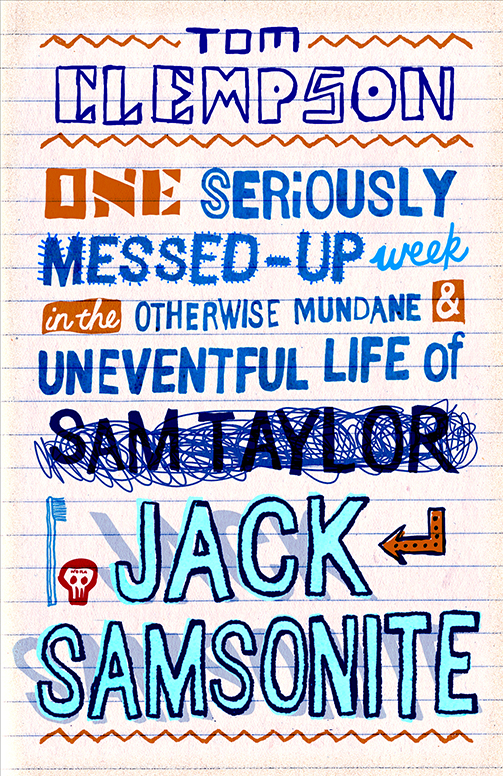 TOM
CLEMPSON
ONE SERiOUSLY
MESSED-UP week
in the OTHERWISE MUNDANE &
UNEVENTFUL LIFE of
SAM TAYLOR
JACK
SAMSONITE